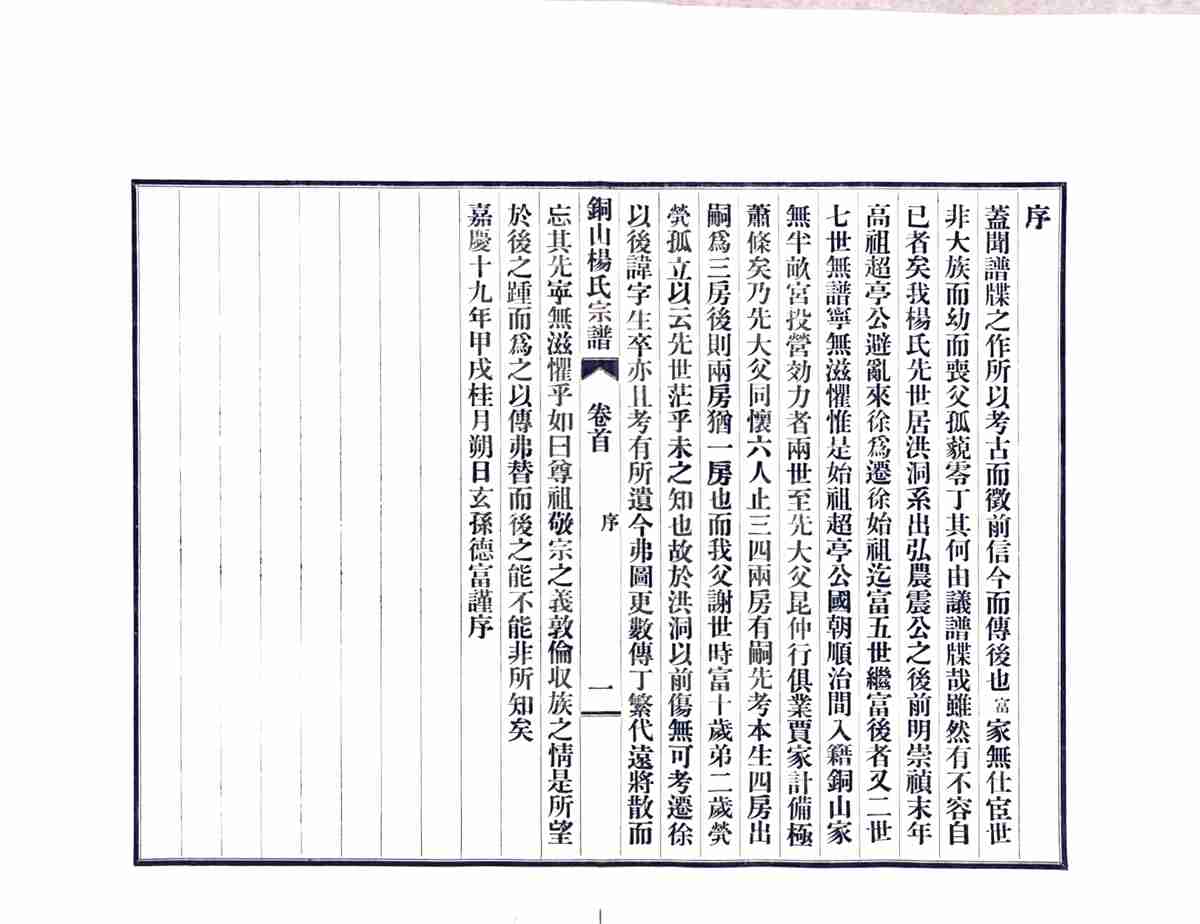 序
蓋聞譜牒之作所以考古而徵前信今而傳後也富家無仕宦世
非大族而幼而喪父孤藐零丁其何由議譜牒哉雖然有不容自
已者矣我楊氏先世居洪洞系出弘農震公之後前明崇禎末年
高祖超亭公避亂來徐爲遷徐始祖迄富五世繼富後者又二世
七世無譜寧無滋懼惟是始祖超亭公國朝順治間入籍銅山家
無半畝宮投營効力者兩世至先大父昆仲行俱業賈家計備極
蕭條矣乃先大父同懷六人止三四兩房有嗣先考本生四房出
嗣爲三房後則兩房猶一房也而我父謝世時富十歲弟二歲煢
煢孤立以云先世茫乎未之知也故於洪洞以前傷無可考遷徐
以後諱字生卒亦且考有所遺今弗圖更數傳丁繁代遠將散而
銅山楊氏宗譜 卷首 序 一
忘其先寧無滋懼乎如曰尊祖敬宗之義敦倫取族之情是所望
於後之踵而爲之以傳弗替而後之能不能非所知矣
嘉慶十九年甲戌桂月朔日玄孫德富謹序